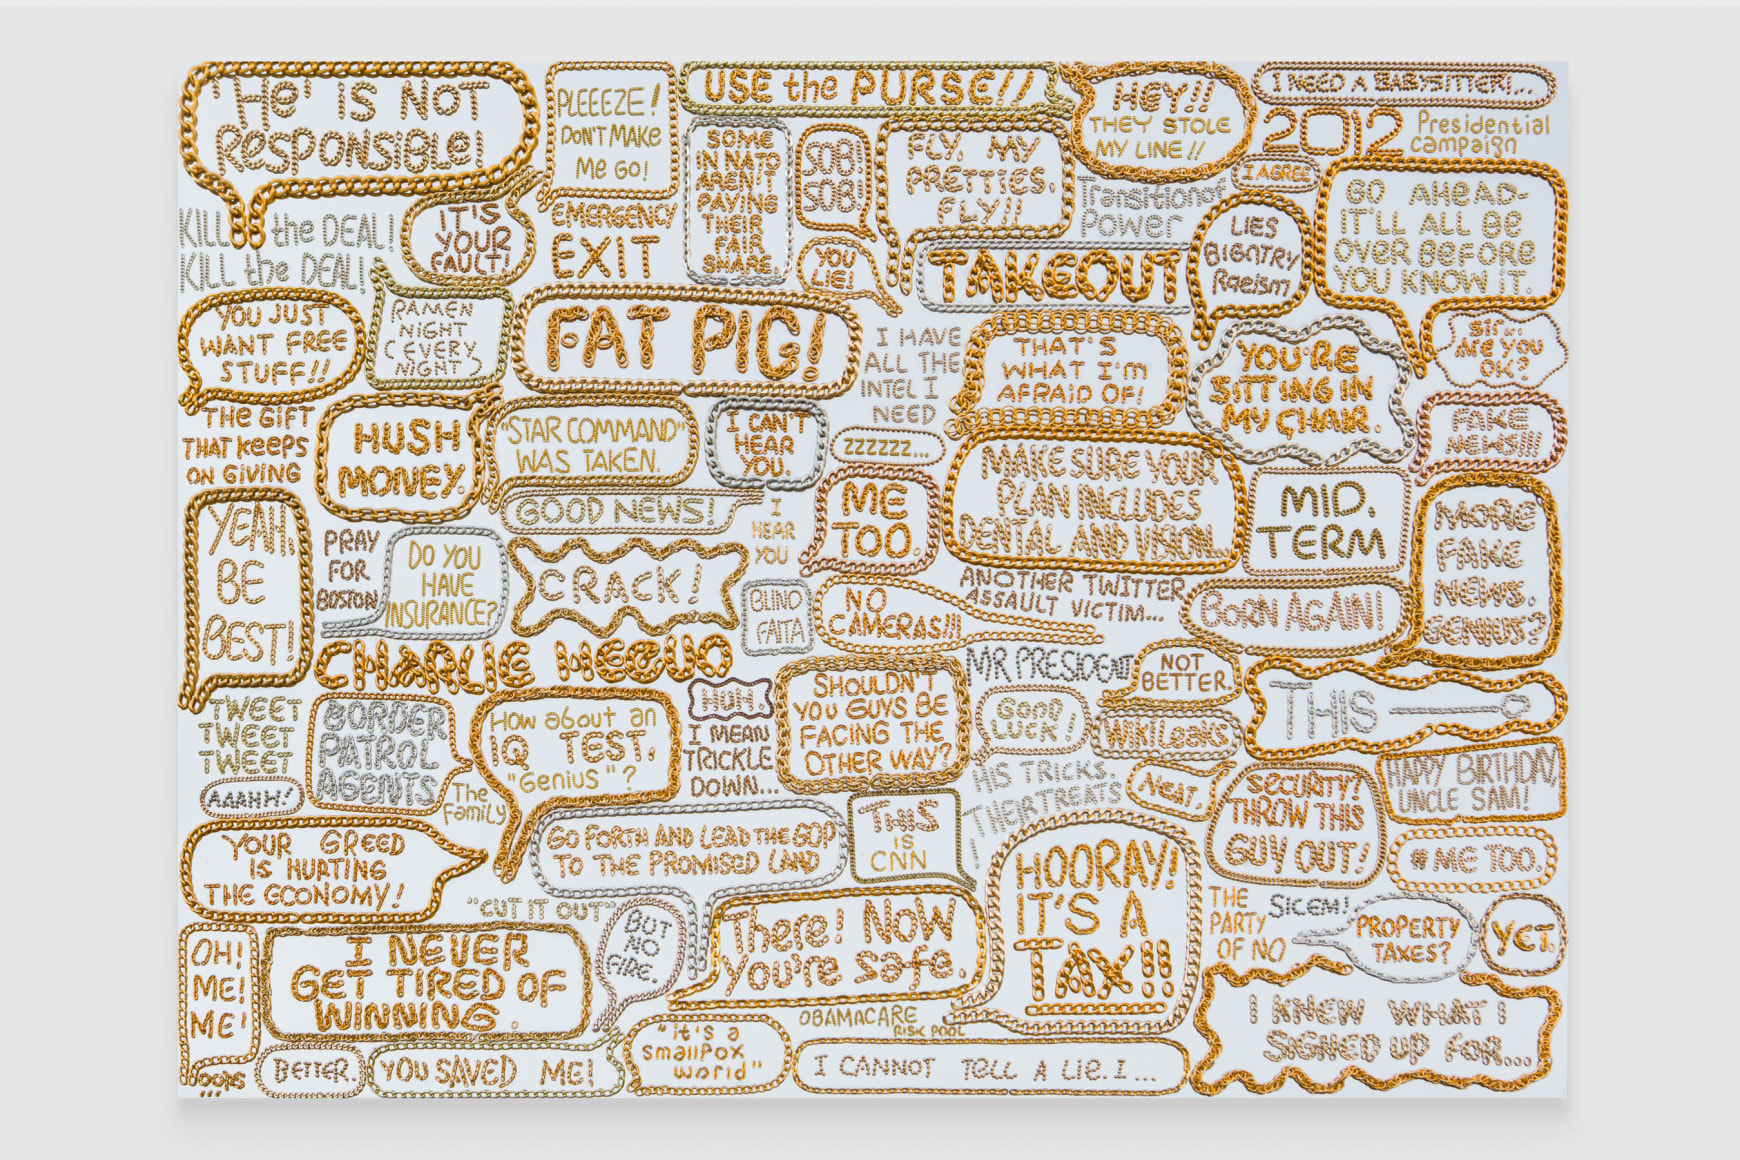 'He' is NOT
Responsible!
PLEEEZE!
DON'T MAKE
Me GO!
USE the PURSE!!
HEY!!
THEY STOLE
MY LINE!!
I NEED A BABYSITTER!...
2012
Presidential
Campaign
SOME
IN NATO
AREN'T
PAYING
THEIR
FAIR
SHARE.
SOB!
SOB!
FLY, MY
PRETTIES,
FLY!!
I AGREE
Transitional
Power
GO AHEAD-
IT'LL ALL BE
OVER BEFORE
YOU KNOW IT.
KILL the DEAL!
KILL the DEAL!
IT'S
YOUR
FAULT!
EMERGENCY
EXIT
YOU
LIE!
TAKEOUT
LIES
BIGNTRY
Racism
YOU JUST
WANT FREE
STUFF!!
RAMEN
NIGHT
(EVERY
NIGHT)
FAT PIG!
I HAVE
ALL THE
INTEL I
NEED
THAT'S
WHAT I'M
AFRAID OF!
YOU'RE
SITTING IN
MY CHAIR.
Sir..
ARE YOU
OK?
THE GIFT
THAT KEEPS
ON GIVING
HUSH
MONEY.
"STAR COMMAND"
WAS TAKEN.
I CAN'T
HEAR
YOU.
ZZZZZZ...
FAKE
NEWS!!!
MAKE SURE YOUR
PLAN INCLUDES
DENTAL AND VISION...
MID.
TERM
MORE
FAKE
NEWS.
GENIUS?
YEAH,
BE
BEST!
GOOD NEWS!
I
HEAR
YOU
ME
TOO.
PRAY
FOR
BOSTON
DO YOU
HAVE
INSURANCE?
CRACK!
BLIND
FAITA
NO
CAMERAS!!!
ANOTHER TWITTER
ASSAULT VICTIM...
BORN AGAIN!
CHARLIE HEBDO
MR PRESIDENT
NOT
BETTER.
THIS
TWEET
TWEET
TWEET
BORDER
PATROL
AGENTS
How about an
IQ TEST,
"Genius"?
HUH.
I MEAN
TRICKLE
DOWN...
SHOULDN'T
YOU GUYS BE
FACING THE
OTHER WAY?
GOOD
LUCK!
WIKILeaks
HAPPY BIRTHDAY,
UNCLE SAM!
AAAHH!
The
Family
HIS TRICKS.
THEIR TREATS!
Neat.
SECURITY?
THROW THIS
GUY OUT!
YOUR GREED
IS HURTING
THE ECONOMY!
GO FORTH AND LEAD THE GOP
TO THE PROMISED LAND
THIS
IS
CNN
HOORAY!
IT'S A
TAX!!
#ME TOO.
"CUT IT OUT"
BUT
NO
FIRE.
There! NOW
You're safe.
THE
PARTY
OF NO
SICEM!
PROPERTY
TAXES?
YET.
OH!
ME!
ME!
I NEVER
GET TIRED OF
WINNING.
OBAMACARE
RISK POOL
I KNEW WHAT I
SIGNED UP FOR...
OOPS
!!!
BETTER.
YOU SAVED ME!
"it's a
smallpox
world"
I CANNOT TELL A LIE. I...